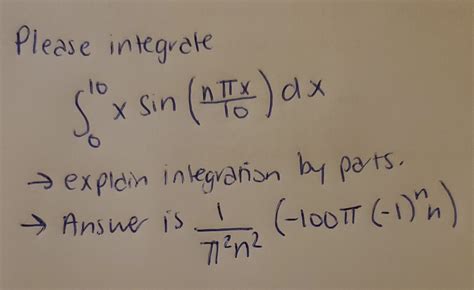 Please integrate
∫₀¹⁰ x sin (nπx/10) dx
→ explain integration by parts.
→ Answer is 1/π²n² (-100π (-1)ⁿ n)